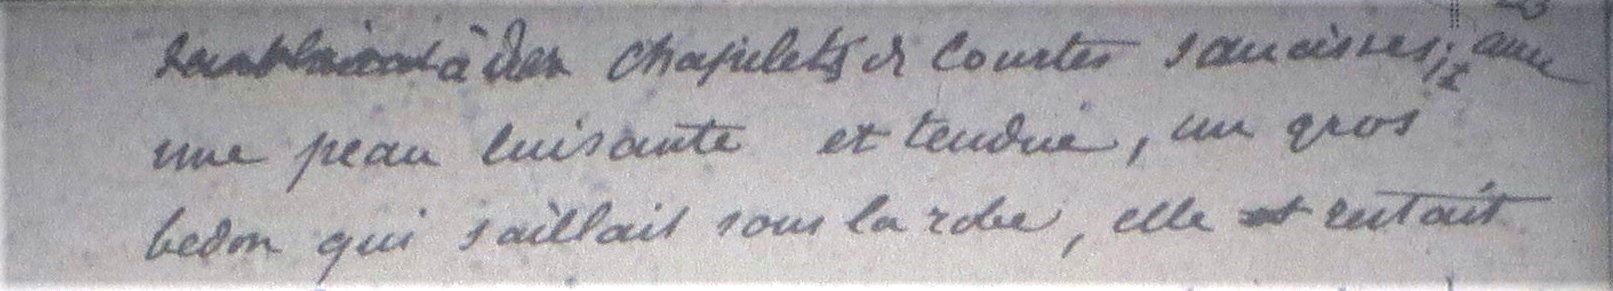 à des chapelets de courtes saucisses; avec
une peau luisante et tendue, un gros
bedon qui saillait sous la robe, elle restait